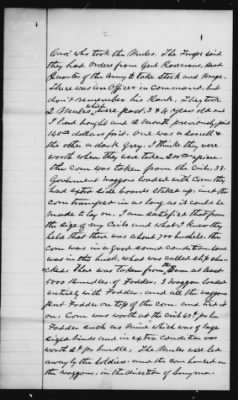 who took the Mules. The Troops said
they had orders from Genl Rosecrans, Head
Quarters of the Army to take stock and forage.
There was an Officer in Command, but
don't remember his Rank. They took
2 Mules, were past 3 & 4 years old and
I had bought one 12 Month previously, paid
140 dollars for it. One was a sorrell &
the other a dark Grey. I think they were
worth when they were taken
The Corn was taken from the Crib, 38
Government waggons loaded with Corn they
had extra side boards piked up, and the
corn tramped in as long as it could be
made to lay on. I am satisfied that from
the size of my Cribs and what I know they
held that there was about 700 bushels. the
corn was in a good sound condition was
was in the husk, what was called
There was taken from, them at least
5000 Bundles of Fodder, 3 waggons loaded
entirely with Fodder, and all the waggons
put Fodder on top of the corn and tied it
on. Corn was worth at the crib per bu
Fodder such as mine which was of large
sized binds and in extra condition was
worth per bundle. The Mules were led
away by the Soldiers, and the corn hauled on
the waggons, in the direction of Smyrna.